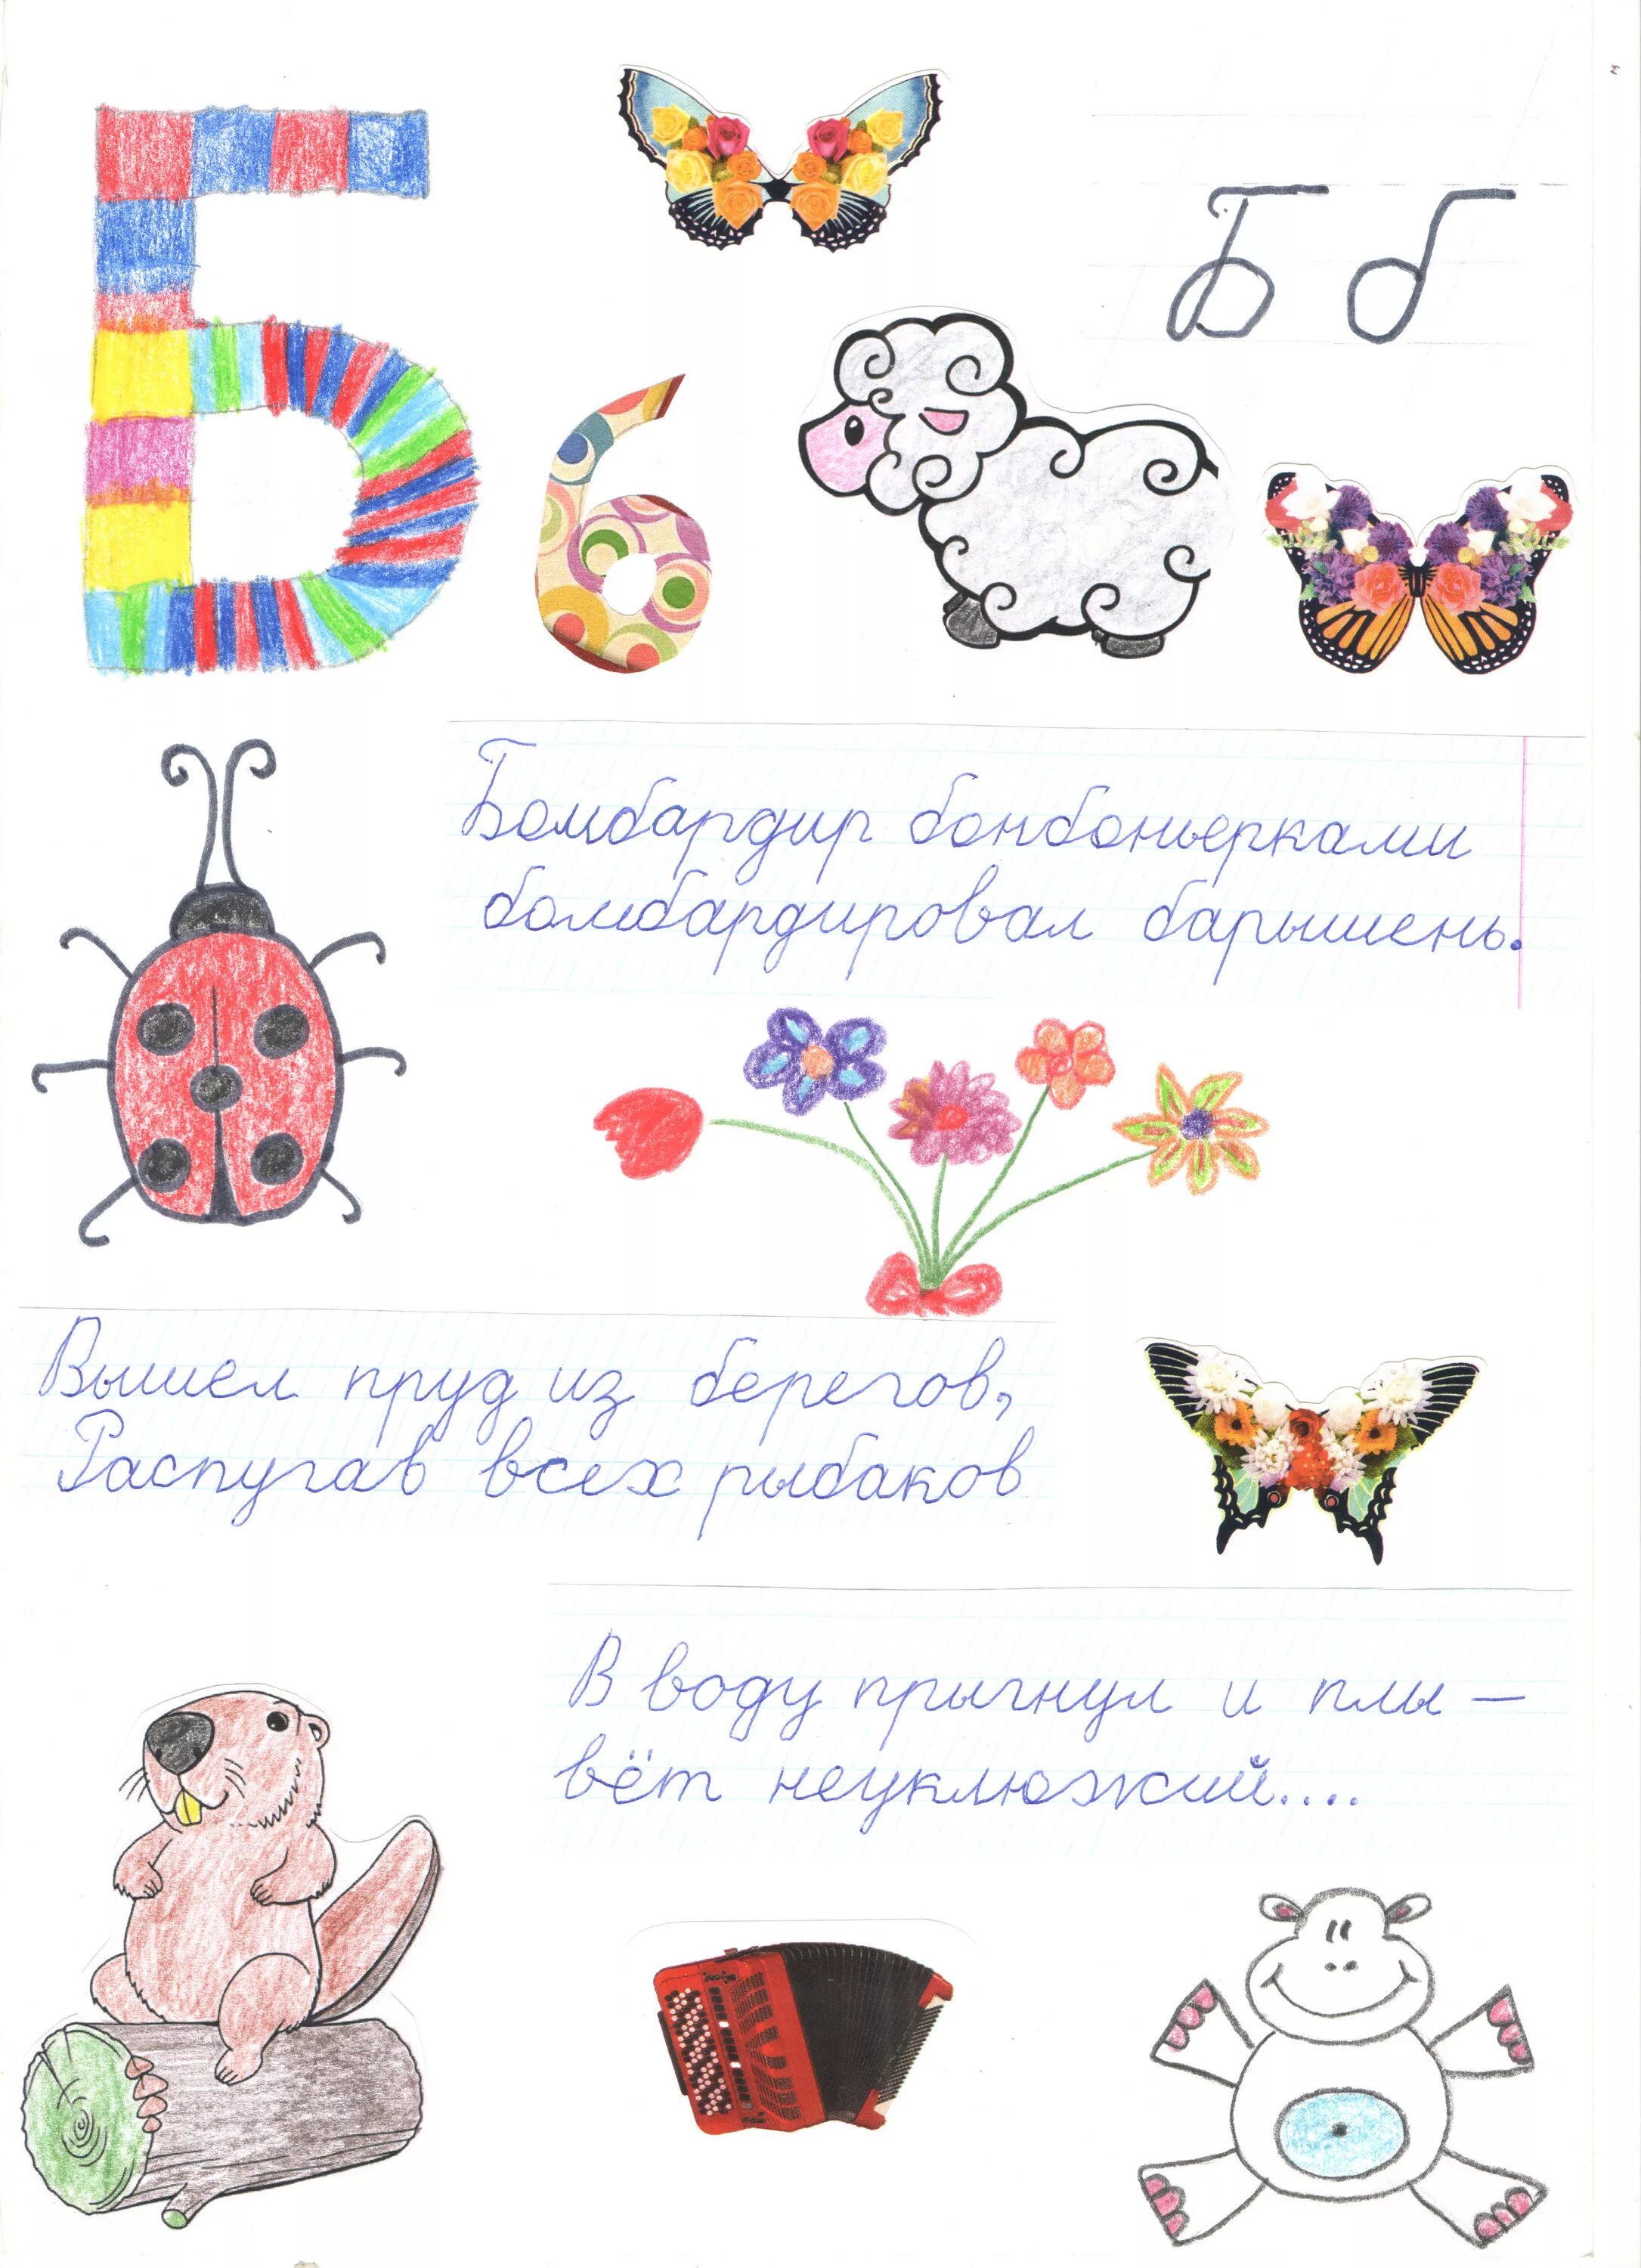 Б б
Б б
Бомбардир бонбоньерками
бомбардировал барышень.
Вышел пруд из берегов,
Распугав всех рыбаков
В воду прыгнул и плы —
вёт неуклюжий....